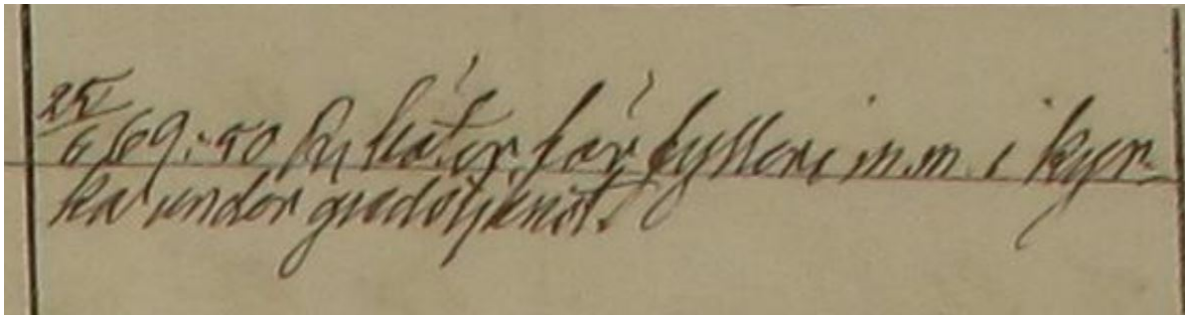 25/6 69: 50 R. böter för fylleri m.m. i kyr-
ka under gudstjenst.